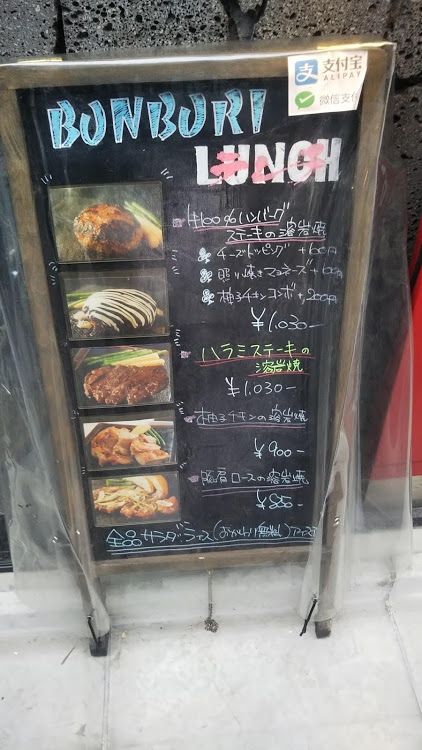 支付宝
ALIPAY
微信支付
BONBORI
LUNCH
ランチ
牛100%ハンバーグ
ステーキの溶岩焼
チーズトッピング +100円
照り焼きマヨネーズ +100円
柚子チキンコンボ +200円
¥1,030-
ハラミステーキの
溶岩焼
¥1,030-
柚子チキンの溶岩焼
¥900-
豚肩ロースの溶岩焼
¥850-
全品 サラダ・ライス(おかわり無料)